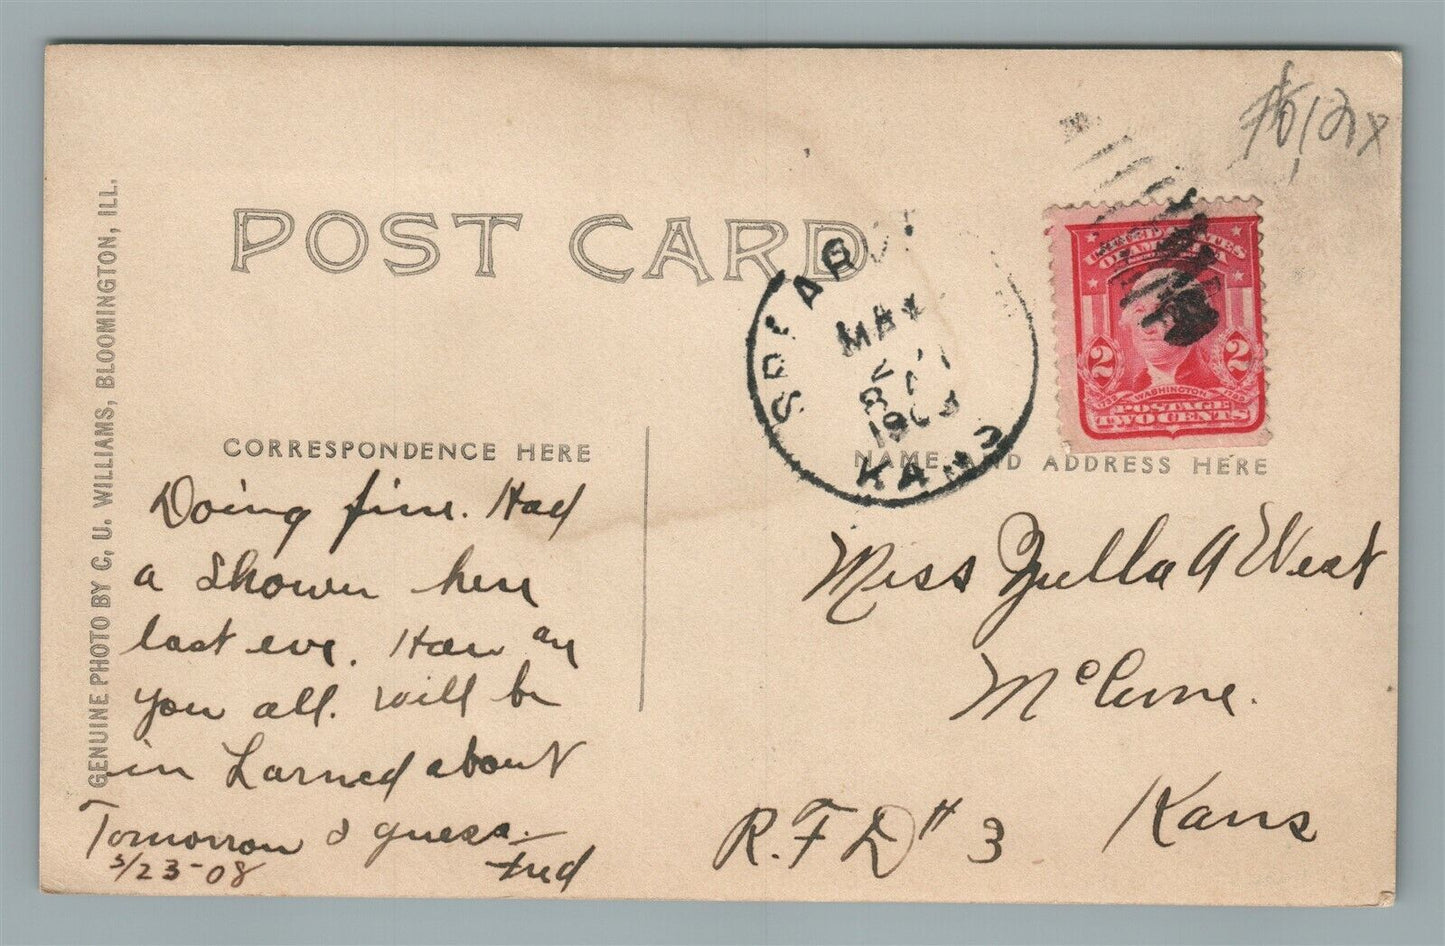 POST CARD
GENUINE PHOTO BY C. U. WILLIAMS, BLOOMINGTON, ILL.
SPEAR
MAY
8 AM
190
KANS
UNITED STATES
OF AMERICA
2 2
WASHINGTON
POSTAGE
TWO CENTS
CORRESPONDENCE HERE
NAME AND ADDRESS HERE
Doing fine. Had
a Shower here
last eve. How are
you all. will be
in Larned about
Tomorrow I guess.—
Fred
5/23-08
Miss Zulla A West
McCune.
Kans
R.F.D # 3